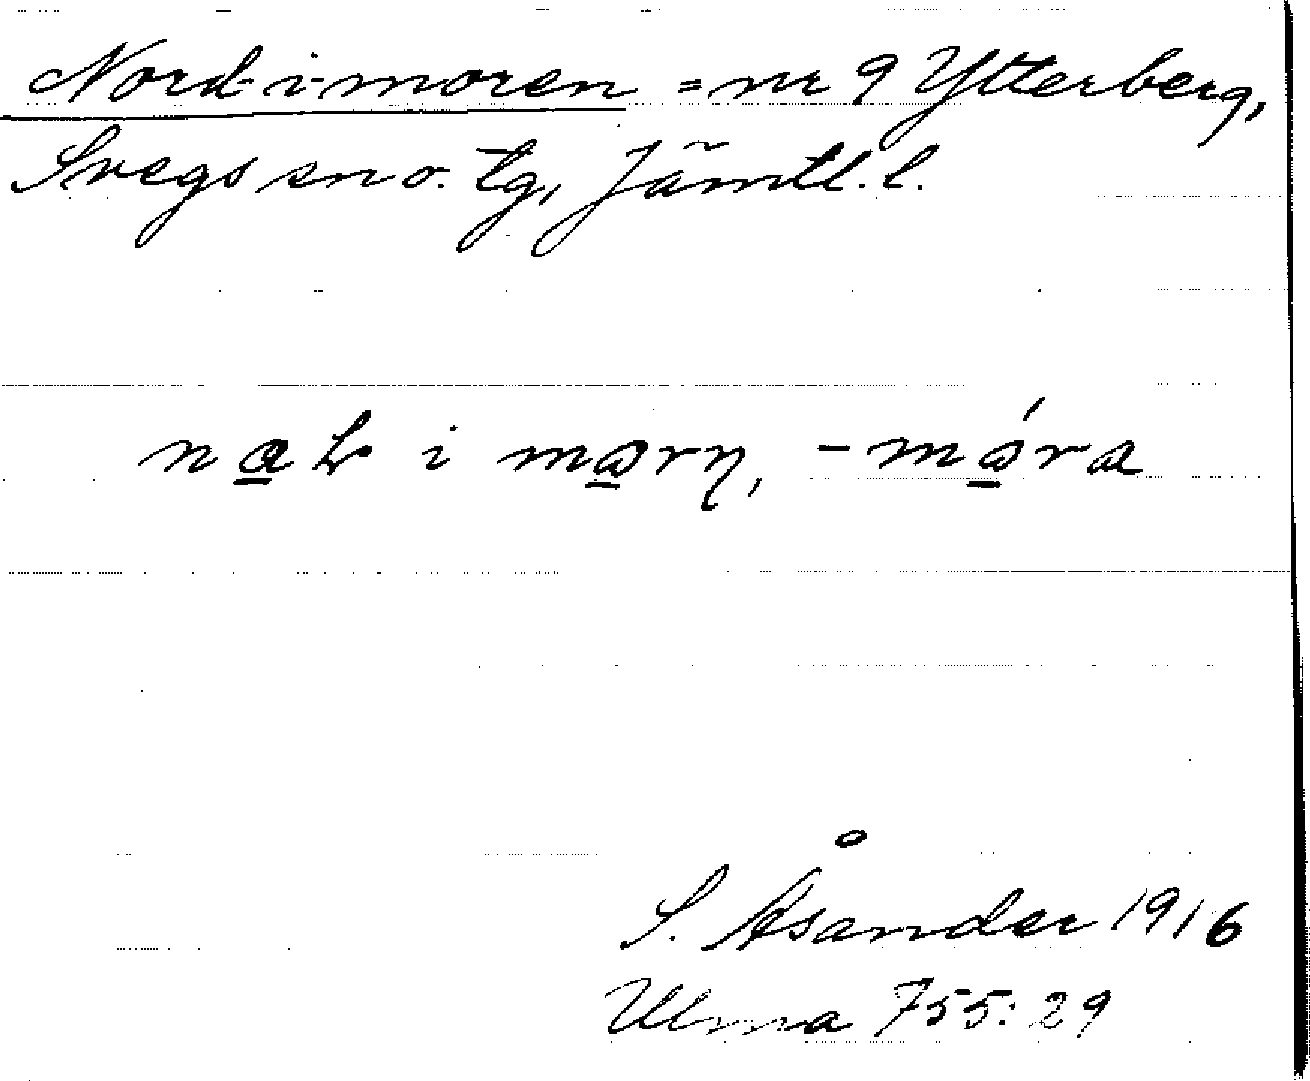 Nord-i-moren = nr 9 Ytterberg,
Svegs sn o. tg, Jämtl. l.
i
S. Åsander 1916
Ulma 755:29